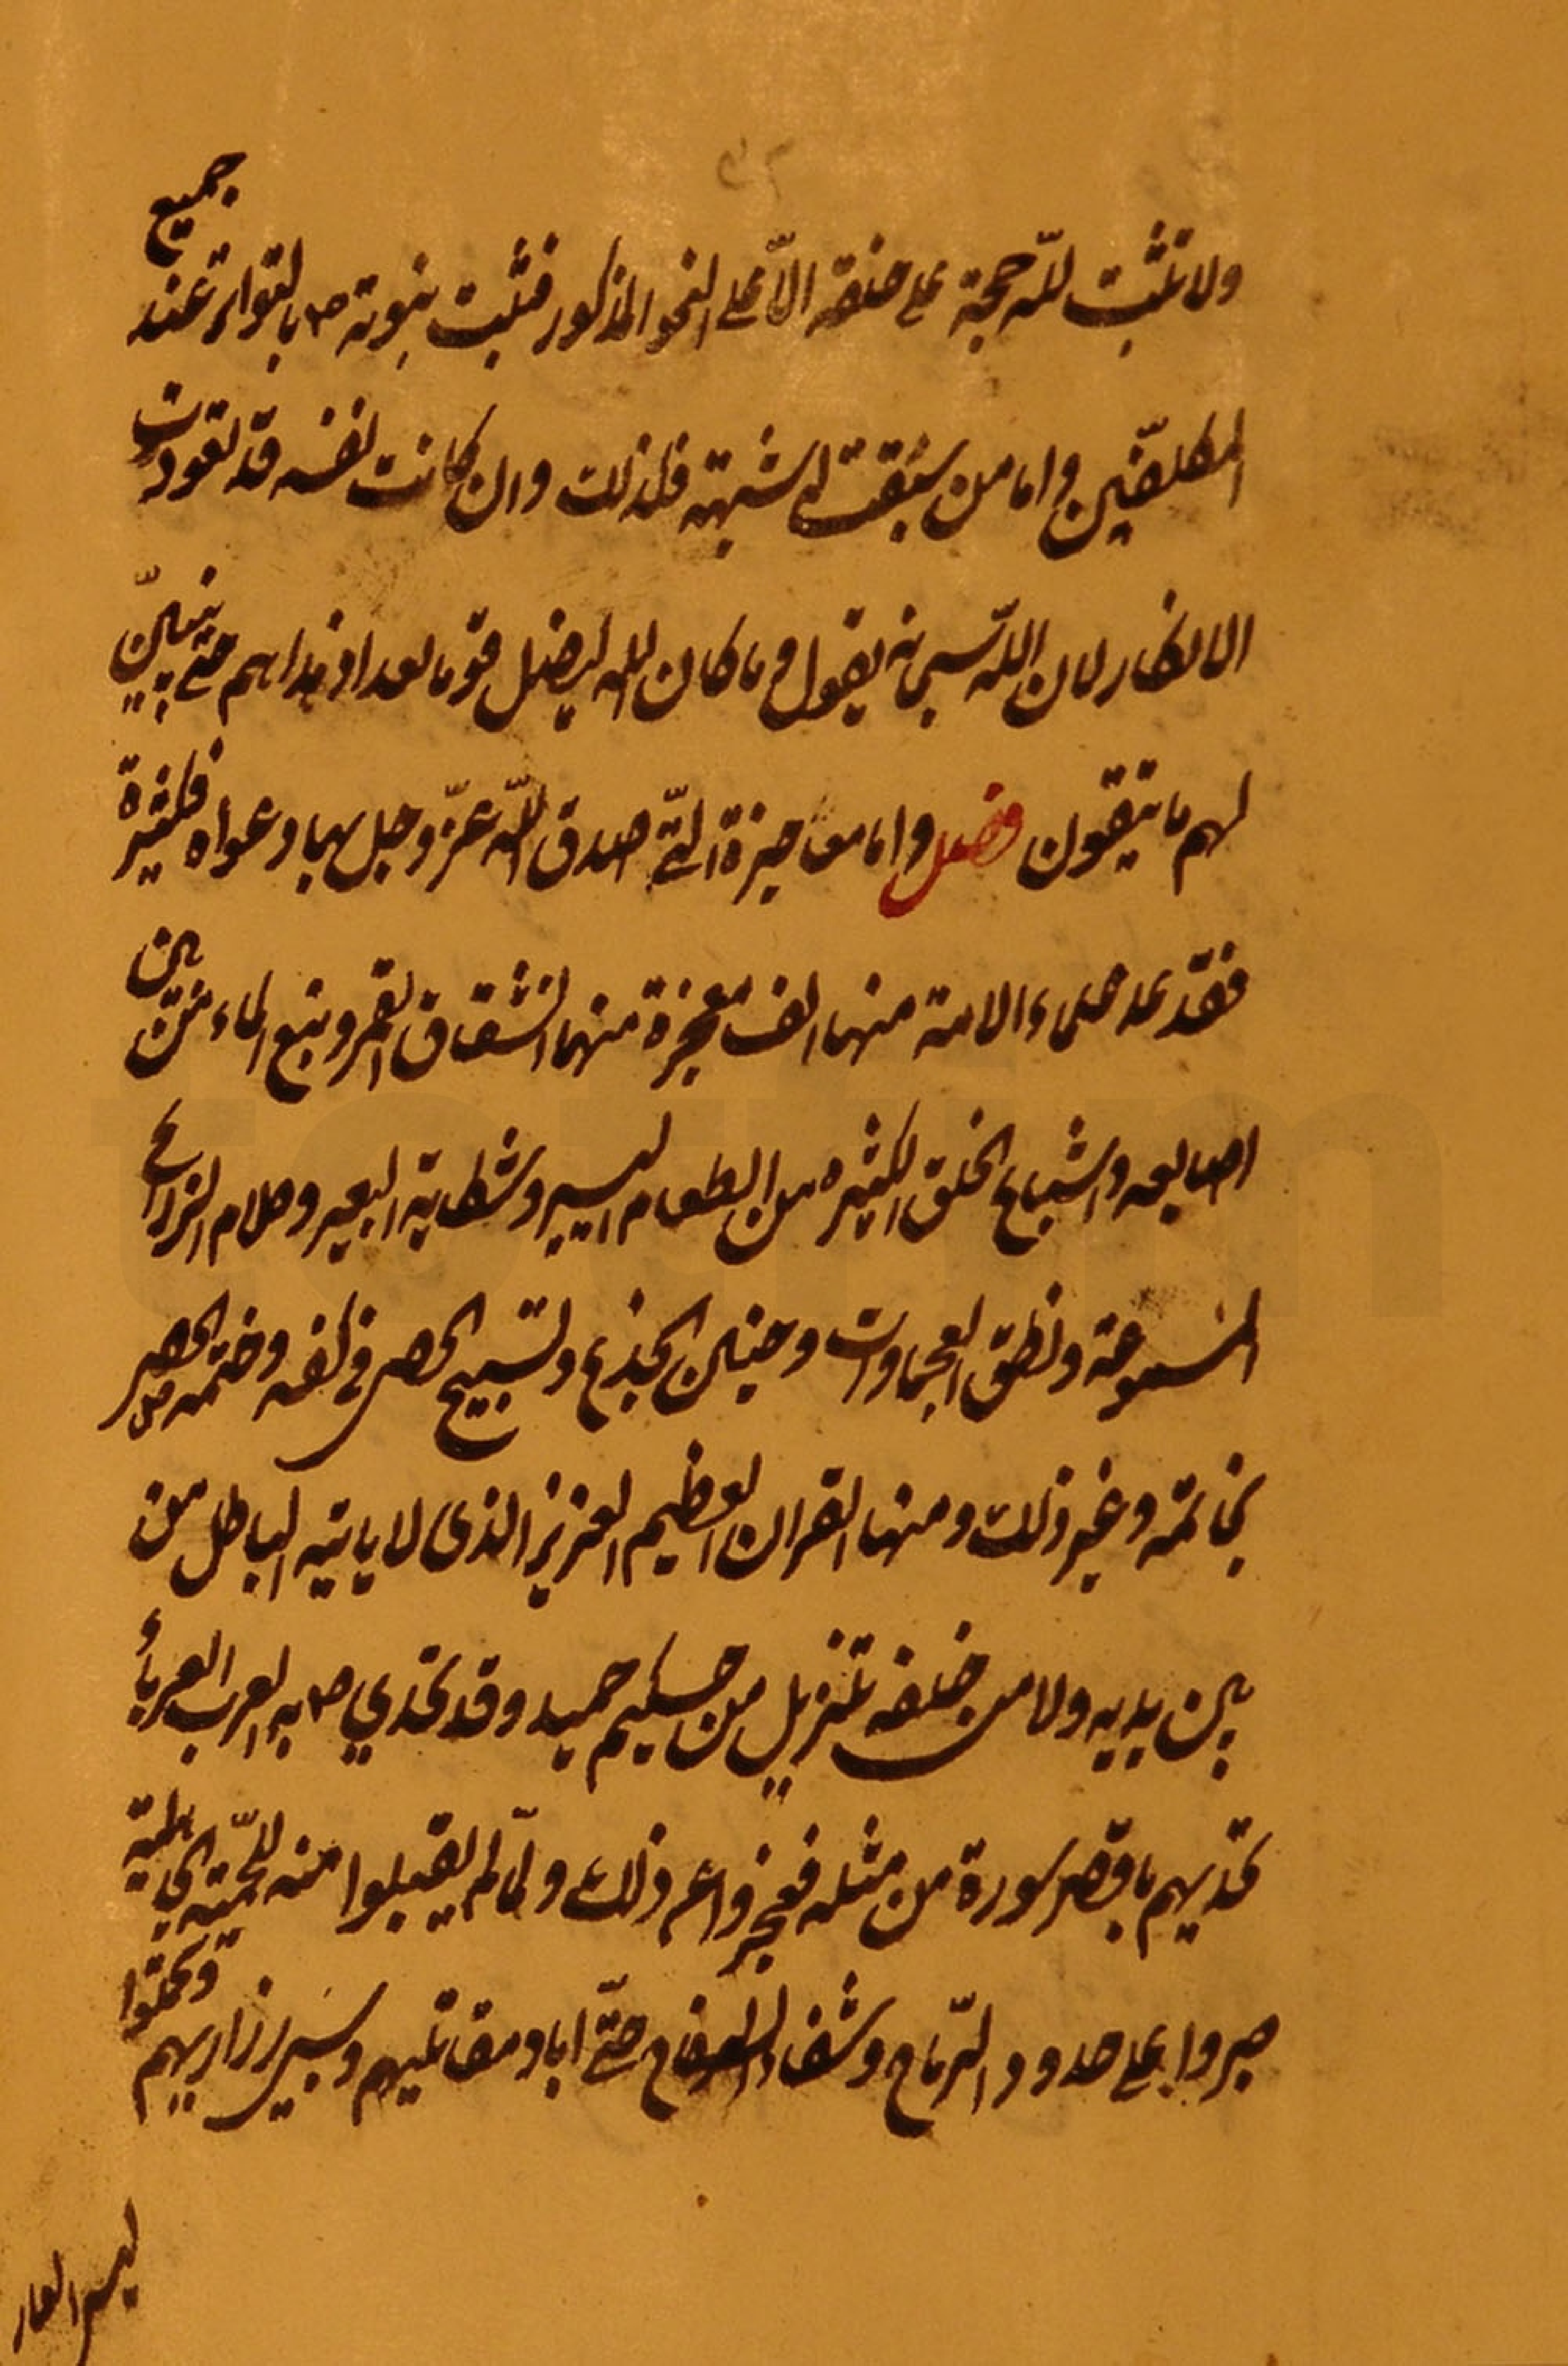 ولا تثبت لله حجة على خلقه الّا على النحو المذكور فثبت بنبوته ص بالتواتر عند جميع
المكلفّين واما من سبقت له شبهة فلذلك وان كانت نفسه قد تعودت
الانكار لان اللّه سبحانه يقول وما كان الله ليضل قوما بعد اذ هداهم حتى يتبيّن
لهم ما يتقون فصل واما معاجزة التّى صدق اللّه عزّ وجل بها دعواه فكثيرة
فقد عد علماء الامة منها الف معجزة منها انشقاق القمر ونبع الماء من بين
اصابعه واشباع الخلق الكثيره من الطعام اليسير وشكاية البعير وكلام الذراع
المسمومة ونطق العجماوات وحنين الجذع وتسبيح الحصى فى كفه وختمه ص الحصى
بخاتمه وغير ذلك ومنها القران العظيم العزيز الذى لا ياتيه الباطل من
بين يديه ولا من خلفه تنزيل من حكيم حميد وقد تحدي ص به العرب العرباء
تحديهم باقصر سورة من مثله فعجزوا عن ذلك ولمّا لم يقبلوا منه للحميّة الجاهلية
صبروا على حدود الرّماح وشفار الصفاح حتّى اباد مقاتليهم وسبى ذراريهم وتحملوا